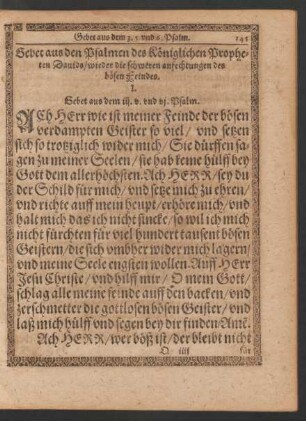 Gebet aus dem 3. 5. vnd 6. Psalm. 145
Gebet aus den Psalmen des Königlichen Prophe-
ten Dauids/ wieder die schweren anfechtungen des
bösen Feindes.
I.
Gebet aus dem iij. v. vnd vj. Psalm.
ACh HErr wie ist meiner Feinde der bösen
verdampten Geister so viel/ vnd setzen
sich so trotziglich wider mich/ Sie dürffen sa-
gen zu meiner Seelen/ sie hab keine hülff bey
Gott dem allerhöchsten. Ach HERR/ sey du
der Schild für mich/ vnd setze mich zu ehren/
vnd richte auff mein heupt/ erhöre mich/ vnd
halt mich das ich nicht sincke/ so wil ich mich
nicht fürchten für viel hundert tausent bösen
Geistern/ die sich vmbher wider mich lagern/
vnd meine Seele engsten wollen. Auff HErr
Jesu Christe/ vnd hilff mir/ O mein Gott/
schlag alle meine feinde auff den backen/ vnd
zerschmetter die gottlosen bösen Geister/ vnd
laß mich hülff vnd segen bey dir finden/ Amẽ.
Ach HERR/ wer böß ist/ der bleibt nicht
O iiij für